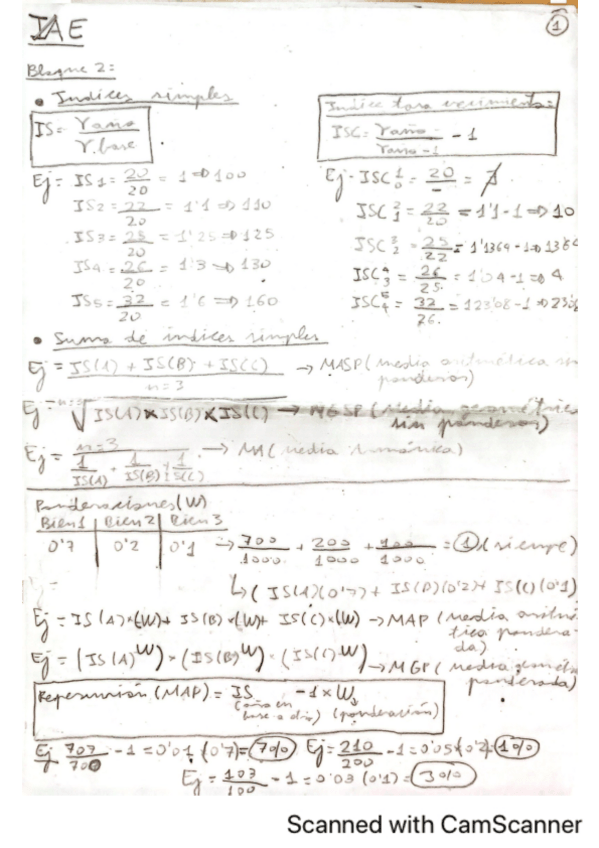 IAE
1
Bloque 2:
• Indices simples
IS = Yaño / Y.base
Ej = IS1 = 20/20 = 1 => 100
IS2 = 22/20 = 1'1 => 110
IS3 = 25/20 = 1'25 => 125
IS4 = 26/20 = 1'3 => 130
IS5 = 32/20 = 1'6 => 160
Índice tasa crecimiento:
ISC = Yaño / Yaño-1 - 1
Ej = ISC 1 0 = 20/- = ∄
ISC 2 1 = 22/20 = 1'1-1 => 10
ISC 3 2 = 25/22 = 1'1364-1 =>
ISC 4 3 = 26/25 = 1'04-1 => 4
ISC 5 4 = 32/26 = 123'08-1 =>
• Suma de indices simples
Ej = IS(A) + IS(B) + IS(C) / n=3 → MASP (media aritmética sin
ponderar)
Ej = n=3 √ IS(A) x IS(B) x IS(C) → MGSP (Media geométrica
sin ponderar)
Ej = n=3 / 1/IS(A) + 1/IS(B) + 1/IS(C) → MA (media armónica)
Ponderaciones (W)
Bien 1 | Bien 2 | Bien 3
0'7 | 0'2 | 0'1 → 700/1000 + 200/1000 + 100/1000 = 1 (siempre)
↳ (IS(A)(0'7) + IS(B)(0'2) + IS(C)(0'1)
Ej = IS(A)·(W) + IS(B)·(W) + IS(C)·(W) → MAP (Media aritmé-
tica pondera-
da)
Ej = (IS(A)^W) · (IS(B)^W) · (IS(C)^W) → MGP (media geométr
ponderada)
Repercusión (MAP) = IS - 1 x W
(año en
base a dis) (ponderación)
Ej 707/700 - 1 = 0'01 (0'7) = 7% Ej = 210/200 - 1 = 0'05 (0'2) = 1%
Ej = 103/100 - 1 = 0'03 (0'1) = 3%
Scanned with CamScanner